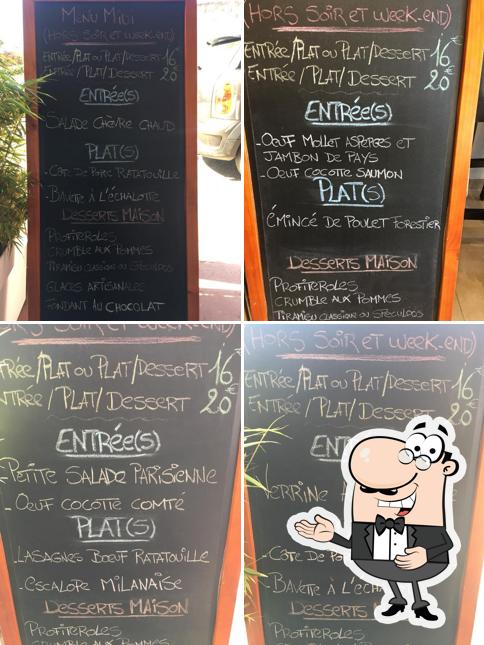 MENU MIDI
(HORS SOIR ET WEEK-END)
ENTRÉE/PLAT OU PLAT/DESSERT 16€
ENTRÉE/PLAT/DESSERT 20€
ENTRÉE(S)
SALADE CHÈVRE CHAUD
PLAT(S)
-CÔTE DE PORC RATATOUILLE
-BAVETTE À L'ÉCHALOTTE
DESSERTS MAISON
PROFITEROLES
CRUMBLE AUX POMMES
TIRAMISU CLASSIQUE OU SPÉCULOOS
GLACES ARTISANALES
FONDANT AU CHOCOLAT
(HORS SOIR ET WEEK-END)
ENTRÉE/PLAT OU PLAT/DESSERT 16€
ENTRÉE/PLAT/DESSERT 20€
ENTRÉE(S)
-OEUF MOLLET ASPERGES ET
JAMBON DE PAYS
-OEUF COCOTTE SAUMON
PLAT(S)
ÉMINCÉ DE POULET FORESTIER
DESSERTS MAISON
PROFITEROLES
CRUMBLE AUX POMMES
TIRAMISU CLASSIQUE OU SPÉCULOOS
(HORS SOIR ET WEEK-END)
TRÉE/PLAT OU PLAT/DESSERT 16€
NTRÉE/PLAT/DESSERT 20€
ENTRÉE(S)
-PETITE SALADE PARISIENNE
-OEUF COCOTTE COMTÉ
PLAT(S)
-LASAGNES BOEUF RATATOUILLE
-ESCALOPE MILANAISE
DESSERTS MAISON
PROFITEROLES
CRUMBLE AUX POMMES
(HORS SOIR ET WEEK-END)
ENTRÉE/PLAT OU PLAT/DESSERT 16€
ENTRÉE/PLAT/DESSERT 20€
ENT
VERRINE
-CÔTE DE PO
-BAVETTE À L'ÉCHA
DESSERTS MAISON
PROFITEROLES